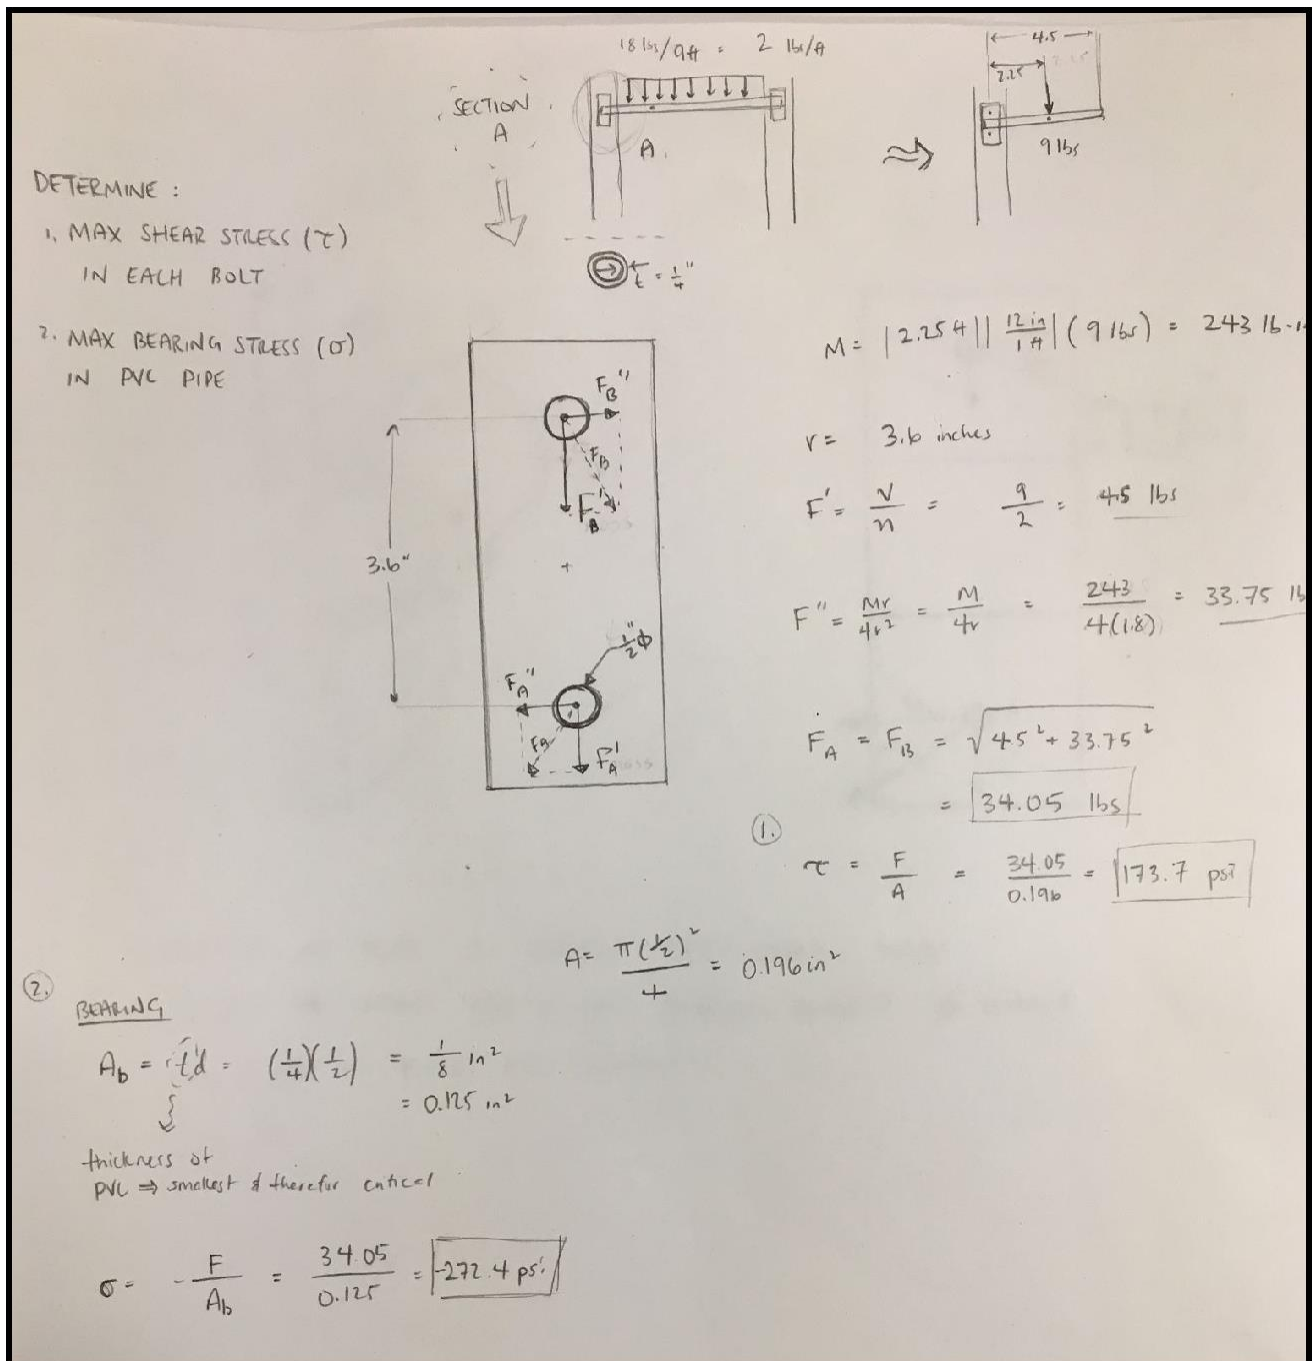 18 lbs/9ft = 2 lbs/ft
4.5
2.25
SECTION
A
A
9 lbs
DETERMINE:
1. MAX SHEAR STRESS (τ)
IN EACH BOLT
t = 1/4"
2. MAX BEARING STRESS (σ)
IN PVC PIPE
M = |2.25 ft| |12 in / 1 ft| (9 lbs) = 243 lb·i
F_B''
F_B
F_B'
r = 3.6 inches
F' = V/n = 9/2 = 4.5 lbs
3.6"
+
F'' = Mr/4r² = M/4r = 243/4(1.8) = 33.75 lb
1/2" ϕ
F_A''
F_A'
F_A = F_B = √4.5² + 33.75²
= 34.05 lbs
1.
τ = F/A = 34.05/0.196 = 173.7 psi
A = π(1/2)²/4 = 0.196 in²
2.
BEARING
A_b = td = (1/4)(1/2) = 1/8 in²
= 0.125 in²
thickness of
PVC ⇒ smallest & therefor critical
σ = -F/A_b = 34.05/0.125 = -272.4 psi